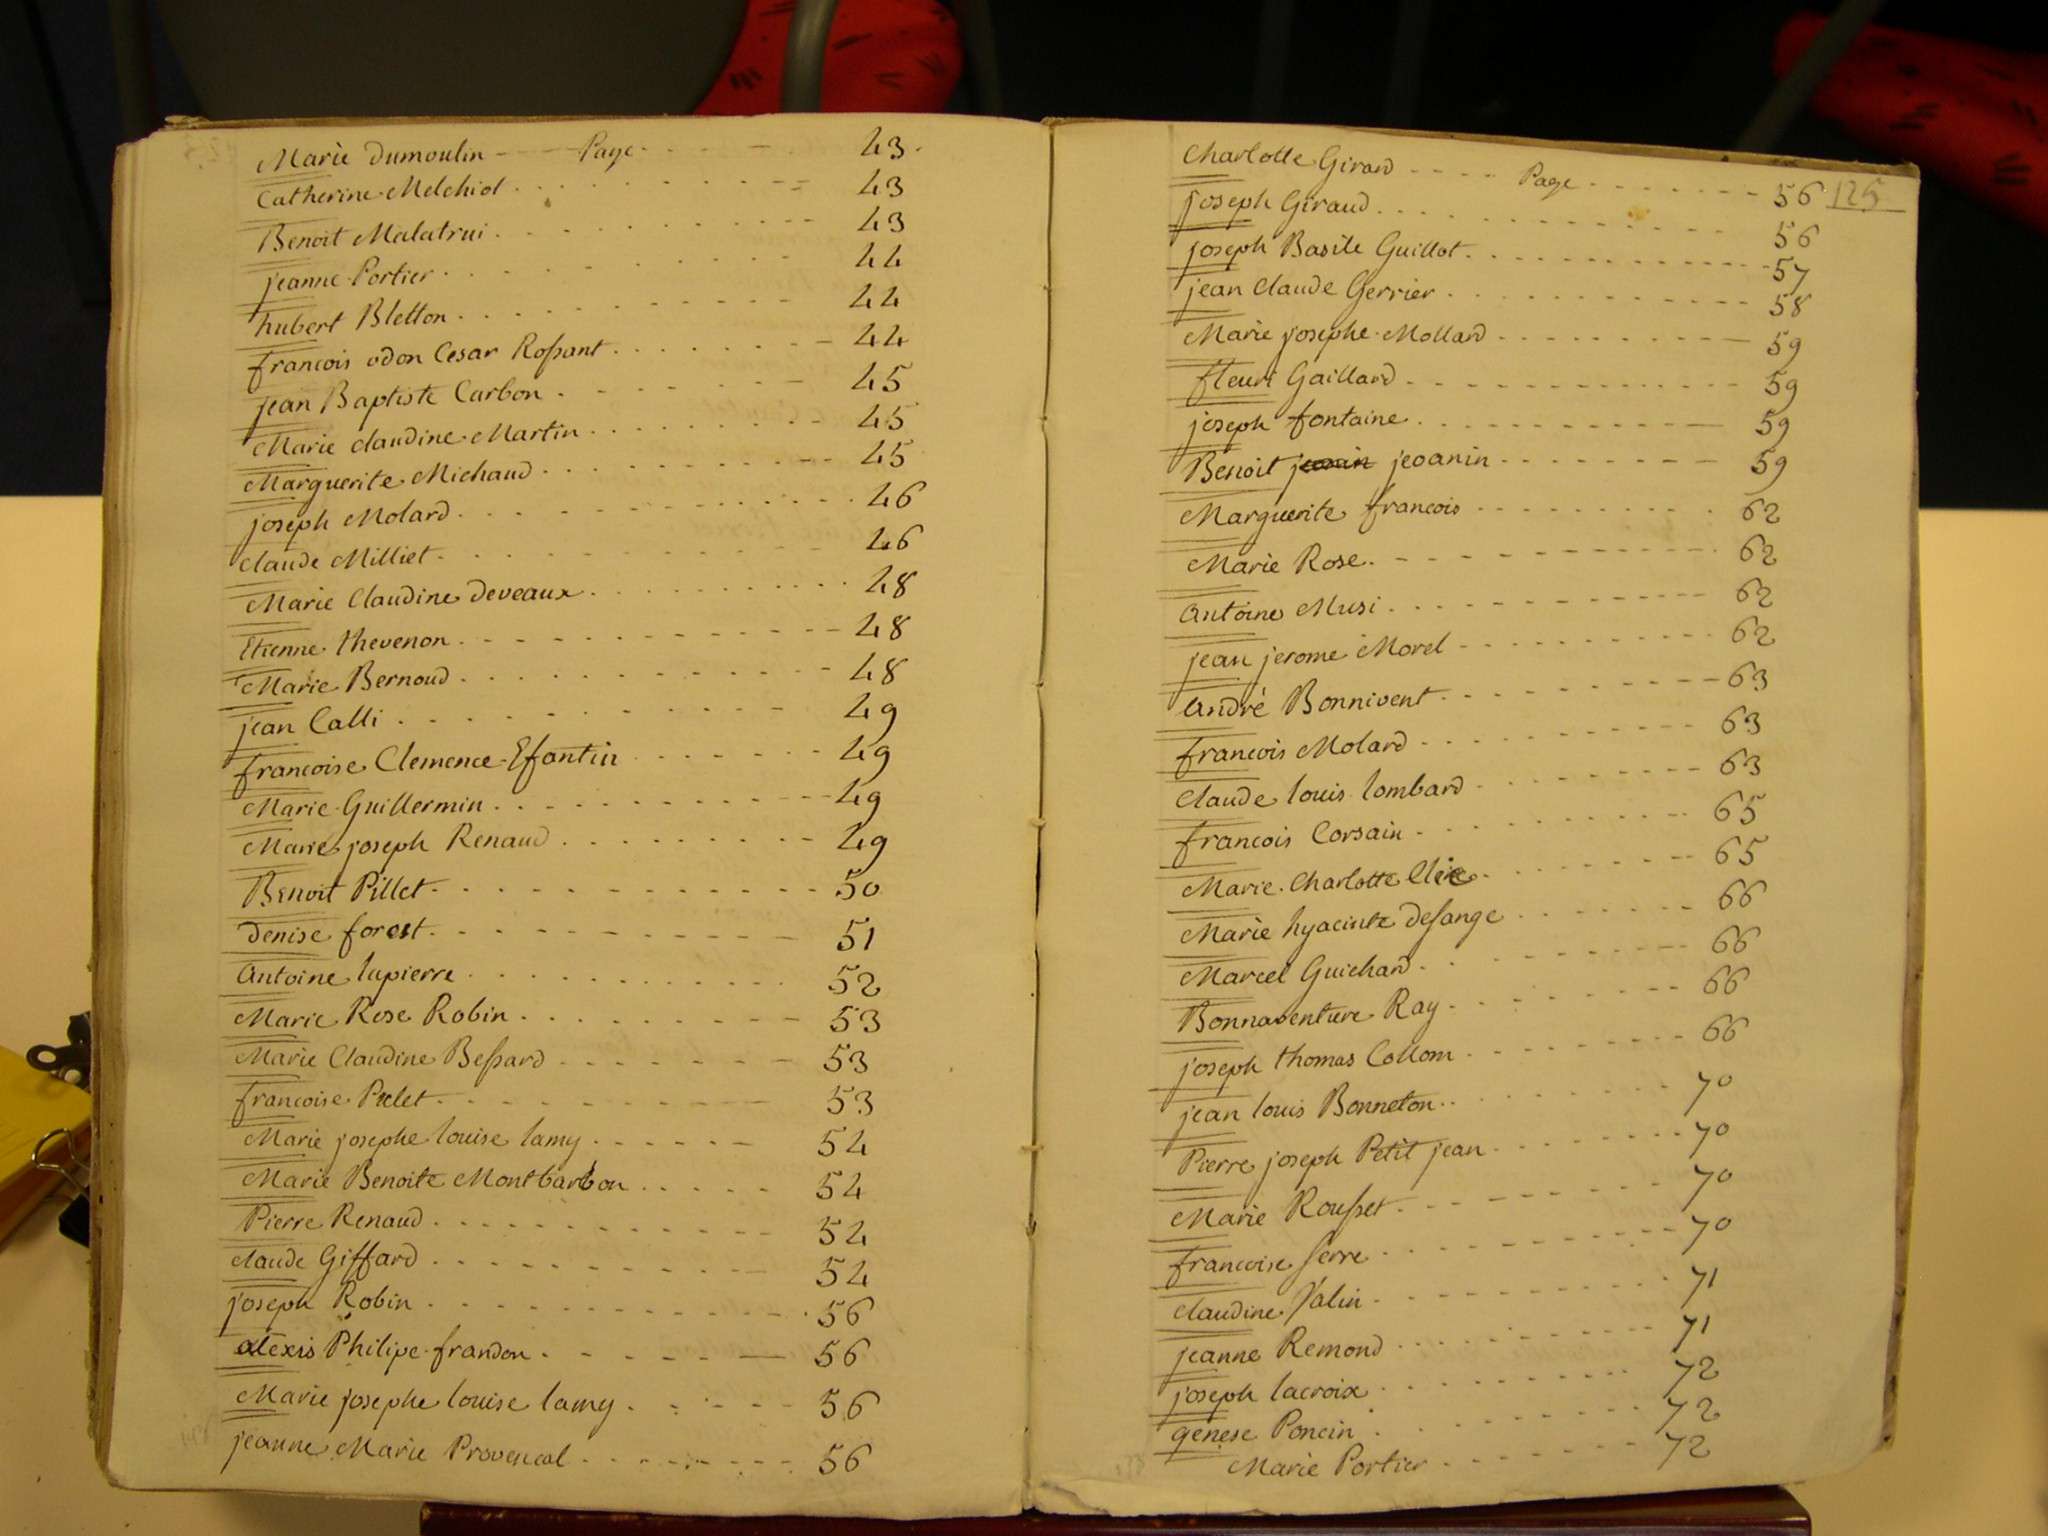 Marie Dumoulin - Page - 43
Catherine Melchiot - 43
Benoit Malatrui - 43
jeanne Portier - 44
hubert Bletton - 44
francois odon Cesar Rossant - 44
jean Baptiste Carbon - 45
Marie claudine Martin - 45
Marguerite Michaud - 45
joseph Molard - 46
claude Milliet - 46
Marie Claudine Deveaux - 48
Etienne thevenon - 48
Marie Bernoud - 48
jean Calli - 49
francoise Clemence Efantin - 49
Marie Guillermin - 49
Marie joseph Renaud - 49
Benoit Pillet - 50
Denise forest - 51
Antoine lapierre - 52
Marie Rose Robin - 53
Marie Claudine Bessard - 53
francoise Pilet - 53
Marie josephe louise lamy - 54
Marie Benoite Montbarbon - 54
Pierre Renaud - 54
claude Giffard - 54
joseph Robin - 56
alexis Philipe frandon - 56
Marie josephe louise lamy - 56
jeanne Marie Provencal - 56
Charlotte Girard - Page - 56 125
joseph Giraud - 56
joseph Basile Guillot - 57
jean claude Gerrier - 58
Marie josephe Mollard - 59
fleuri Gaillard - 59
joseph fontaine - 59
Benoit jeoanin - 59
Marguerite francois - 62
Marie Rose - 62
Antoine Musi - 62
jean jerome Morel - 62
André Bonnivent - 63
francois Molard - 63
Claude louis lombard - 63
francois Corsain - 65
Marie Charlotte - 65
Marie hyacinte desange - 66
Marcel Guichard - 66
Bonnaventure Ray - 66
joseph thomas Collom - 66
jean louis Bonneton - 70
Pierre joseph Petit jean - 70
Marie Rousset - 70
francoise serre - 70
claudine Jalin - 71
jeanne Remond - 71
joseph lacroix - 72
genese Poncin - 72
Marie Portier - 72